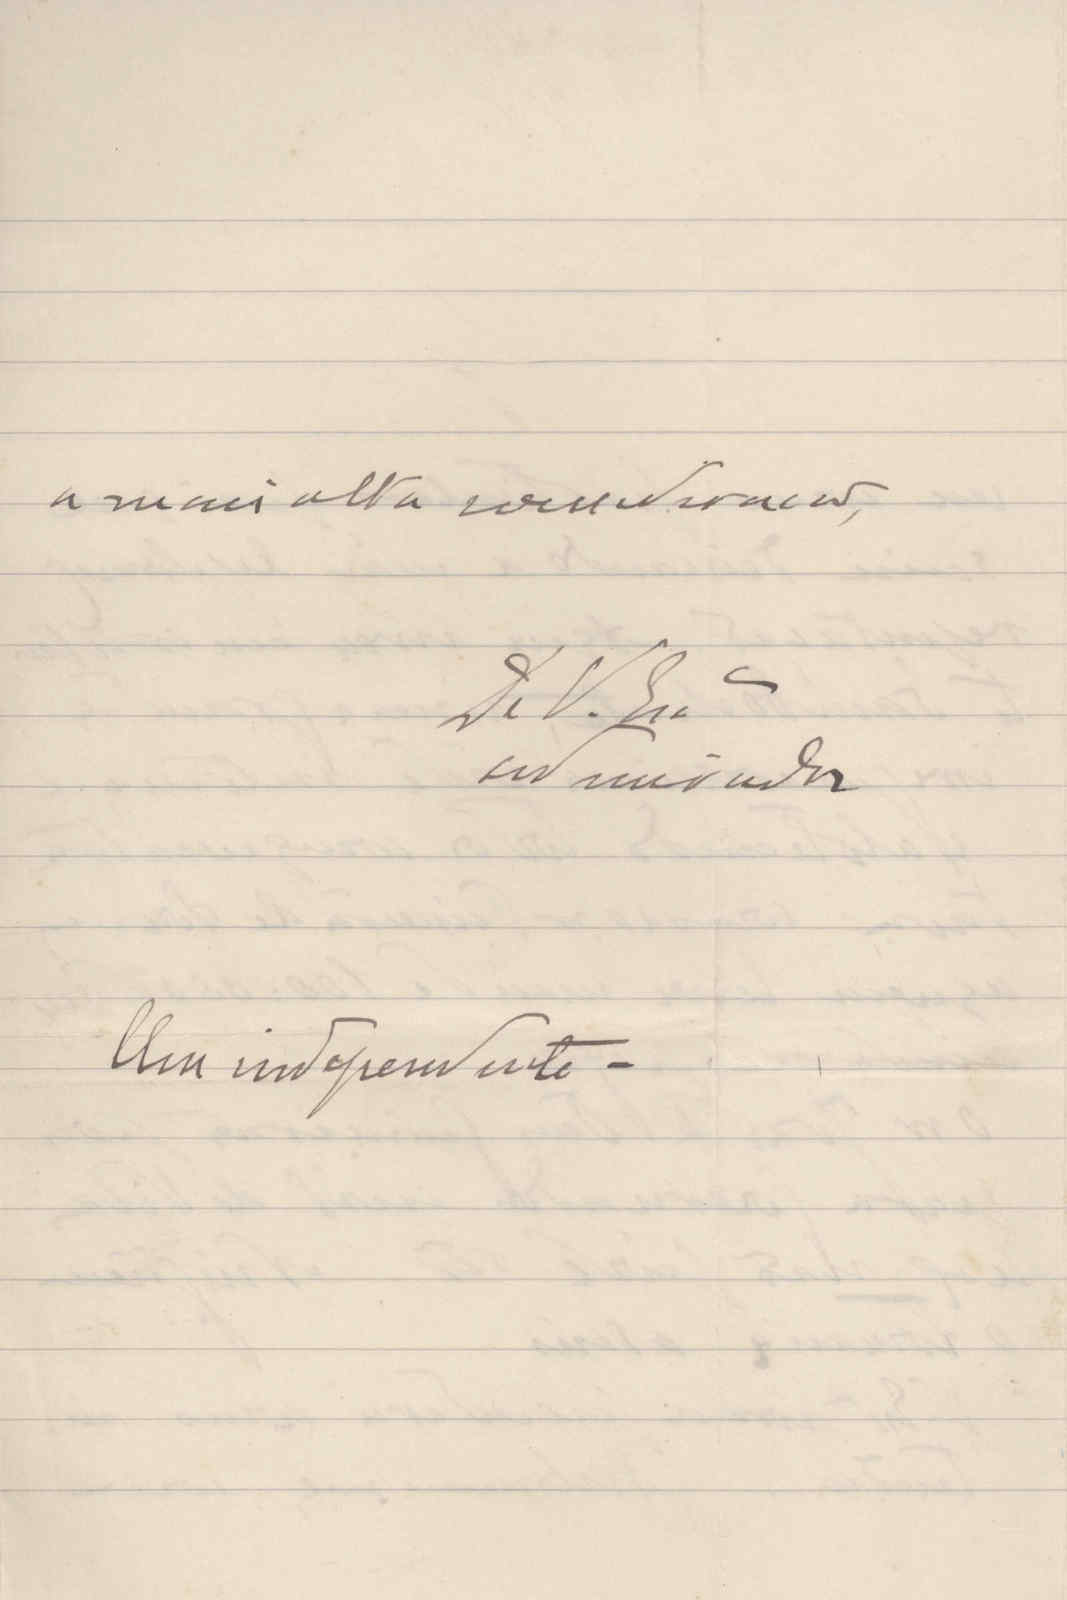 a mais alta consideração,
De V. Exª
admirador
Um independente -